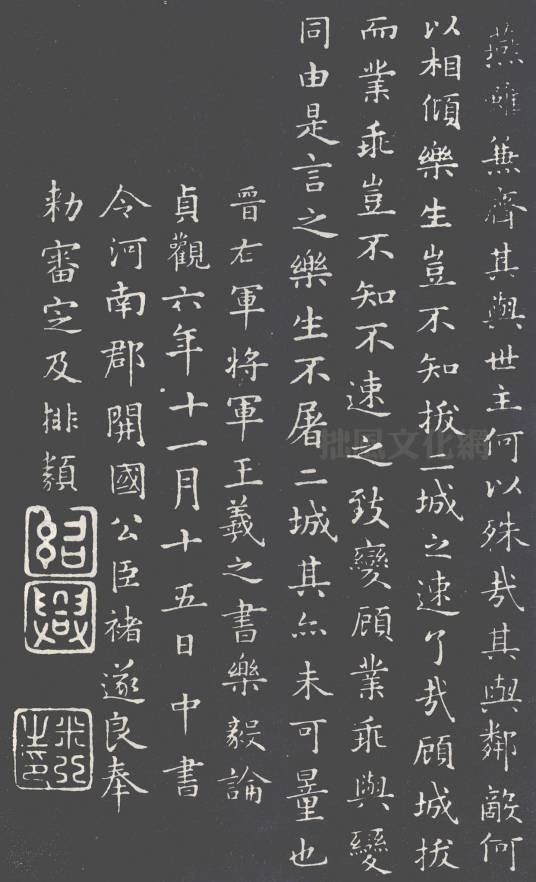 燕雖兼齊其與世主何以殊哉其與鄰敵何
以相傾樂生豈不知拔二城之速了哉顧城拔
而業乖豈不知不速之致變顧業乖與變
同由是言之樂生不屠二城其亦未可量也
晉右軍將軍王羲之書樂毅論
貞觀六年十一月十五日中書
令河南郡開國公臣褚遂良奉
勑審定及排類
紹興
拙風文化網